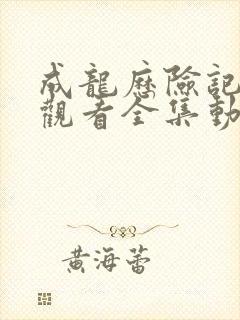 成龍歷險記
觀看全集動
黃海蕾